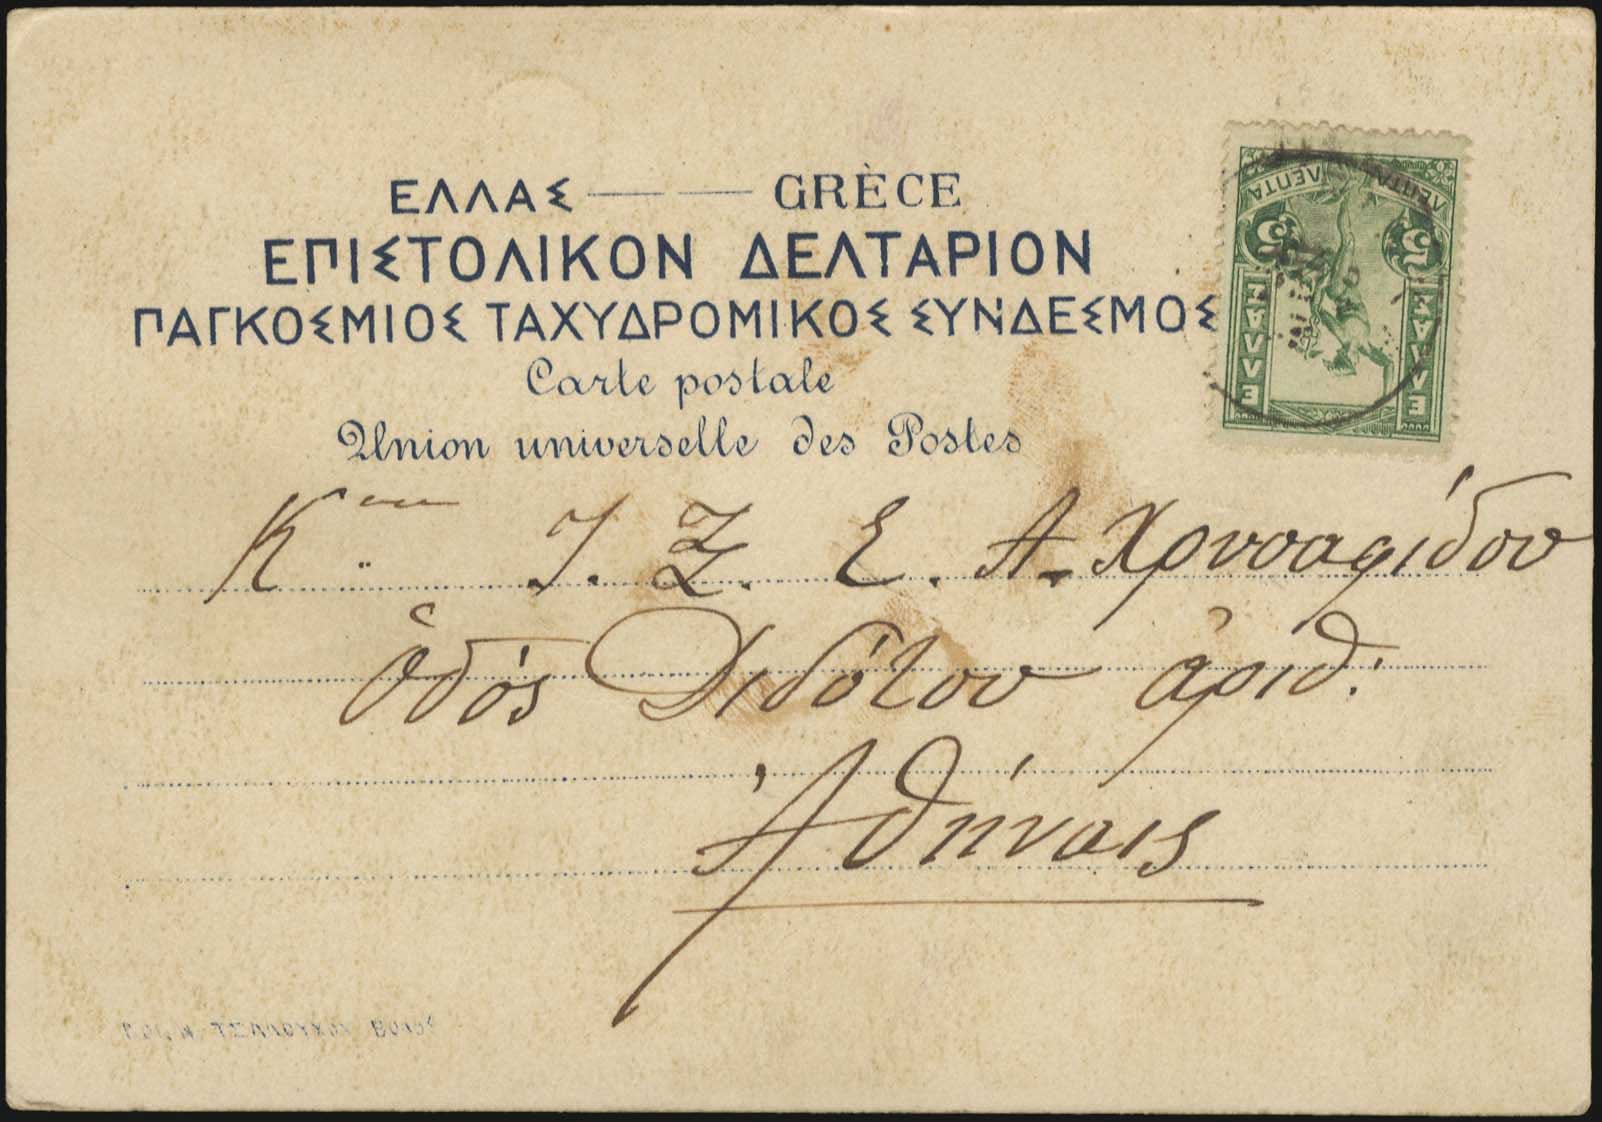 ΕΛΛΑΣ — — GRÈCE
ΕΠΙΣΤΟΛΙΚΟΝ ΔΕΛΤΑΡΙΟΝ
ΠΑΓΚΟΣΜΙΟΣ ΤΑΧΥΔΡΟΜΙΚΟΣ ΣΥΝΔΕΣΜΟΣ
Carte postale
Union universelle des Postes
ΛΕΠΤΑ ΛΕΠΤΑ
5 5
ΕΛΛΑΣ ΕΛΛΑΣ
Ι. Ζ. Ε. Α. Χρυσαφίδου
ὁδός Διδότου ἀριθ:
Ἀθήναις
ΒΟΛΟΣ